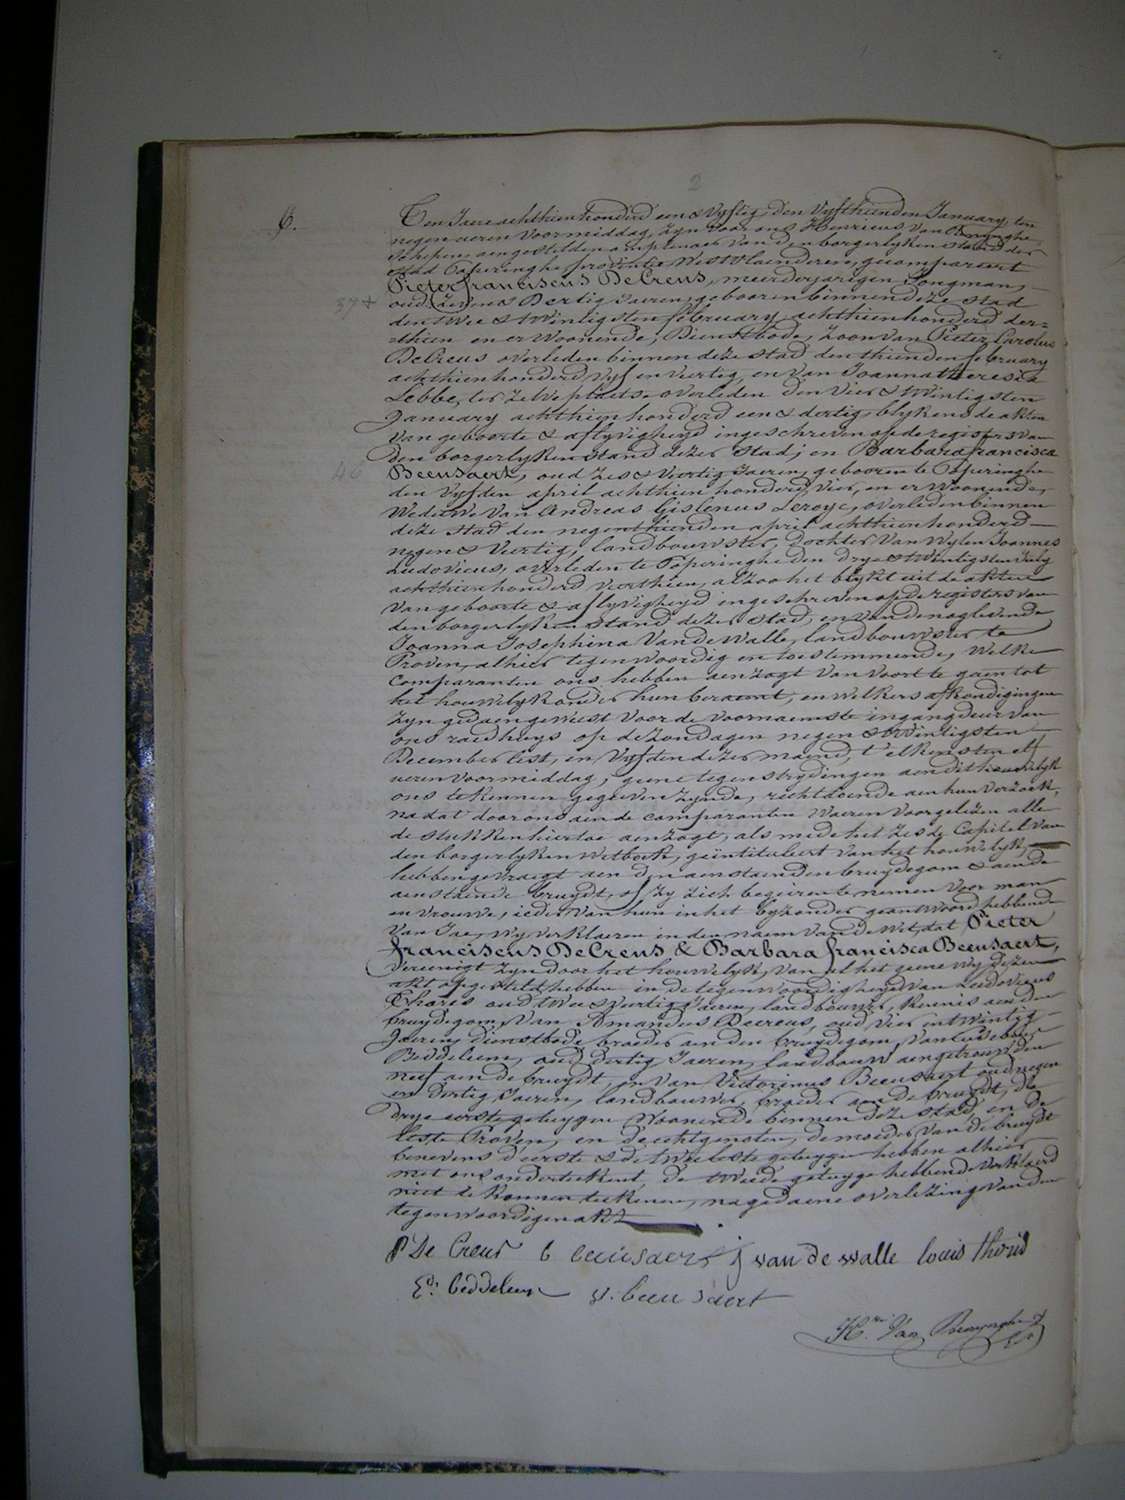 2
6.
Ten Jaere achthienhonderd een & Vyftig, den Vyfthienden January, ten
negen uren Voormiddag, zyn voor ons Henricus Van
Schepen aengestelden amptenaer van den borgerlyken stand der
stad Poperinghe provintie Westvlaenderen, gecompareert
Pieter franciscus DeCreus, meerderjarigen Jongman,
37+
oud zeven & Dertig Jaeren, gebooren binnen deze stad
den twee & twintigsten february achthienhonderd der-
thien en er Woonende, Dienstbode, Zoon van Pieter Carolus
DeCreus overleden binnen deze stad den thienden february
achthienhonderd vyf en Veertig, en van Joanna theresia
Lebbe, ter zelve plaetse overleden den Vier & twintigsten
January achthien honderd een & dertig, blykens de akten
Van geboorte & aflyvigheyd ingeschreven op de registers van
den borgerlyken stand dezer stad; en Barbara francisca
46
Beeusaert, oud Zes & Veertig Jaeren, gebooren te Poperinghe
den Vyfden april achthien honderd Vier, en er Woonende,
Weduwe Van Andreas Gislenus Leroye, overleden binnen
deze stad den negenthienden april achthienhonderd
negen & Veertig, landbouwster, dochter Van Wylen Joannes
Ludovicus, overleden te Poperinghe den drye & twintigsten July
achthienhonderd veerthien, alzoo het blykt uit de akten
Van geboorte & aflyvigheyd ingeschreven op de registers van
den borgerlyken stand dezer stad, en van de naglevende
Joanna Josephina Van de Walle, landbouwster te
Proven, alhier tegenwoordig en toestemmende, Welke
comparanten ons hebben aenzogt Van Voort te gaen tot
het houwelyk onder hun beraemt, en welkers afkondigingen
zyn gedaen geweest Voor de Voornaemste ingangdeur Van
ons raedhuys op de Zondagen negen & twintigsten
December lest, en Vyfden dezer maend, t'elkens ten elf
uren Voormiddag, geene tegenstrydingen aen dit houwelyk
ons te kennen gegeven zynde, rechtdoende aen hun Verzoek,
na dat door ons aen de comparanten Waeren Voorgelezen alle
de stukken hiertoe aenzogt, als mede het Zesde Capitel Van
den borgerlyken Wetboek, geintituleert Van het houwelyk,
hebben gevraegt aen den aenstaenden bruydegom & aen de
aenstaende bruydt, of zy zich begeeren te nemen voor man
en vrouwe, ieder Van hun in het byzonder geantwoord hebbende
Van Jae, Wy verklaeren in den naem Van de Wet, dat Pieter
franciscus DeCreus & Barbara francisca Beeusaert,
Vereenigt zyn door het houwelyk, Van al het geene wy dezen
akt opgestelt hebben in de tegenwoordigheyd van Ludovicus
Thoris oud twee & Veertig Jaeren, landbouwer, kennis aen den
bruydegom, Van Amandus Decreus, oud Vier en twintig
Jaeren, dienstbode, broeder aen den bruydegom, Van Eusebius
Beddeleem, oud dertig Jaeren, landbouwer aengetrouwden
neef aen de bruydt, en van Victorinus Beeusaert oud negen
en dertig Jaeren, landbouwer, broeder aen de bruydt, de
drye eerste getuygen Woonende binnen deze stad, en de
leste Proven, en d'echtgenoten, de moeder Van de bruydt
benevens d'eerste & de twee leste getuygen hebben alhier
met ons onderteekent, de tweede getuyge hebbende verklaerd
niet te konnen teekenen, na gedaene overlezing van den
tegenwoordigen akt
P De Creus b beeusaert j van de walle louis thoris
beddeleem v. beeusaert